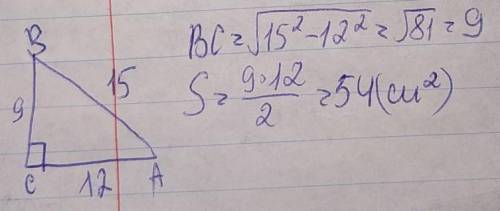 B
15
9
C
12
A
BC = √(15² - 12²) = √81 = 9
S = 9·12/2 = 54 (см²)